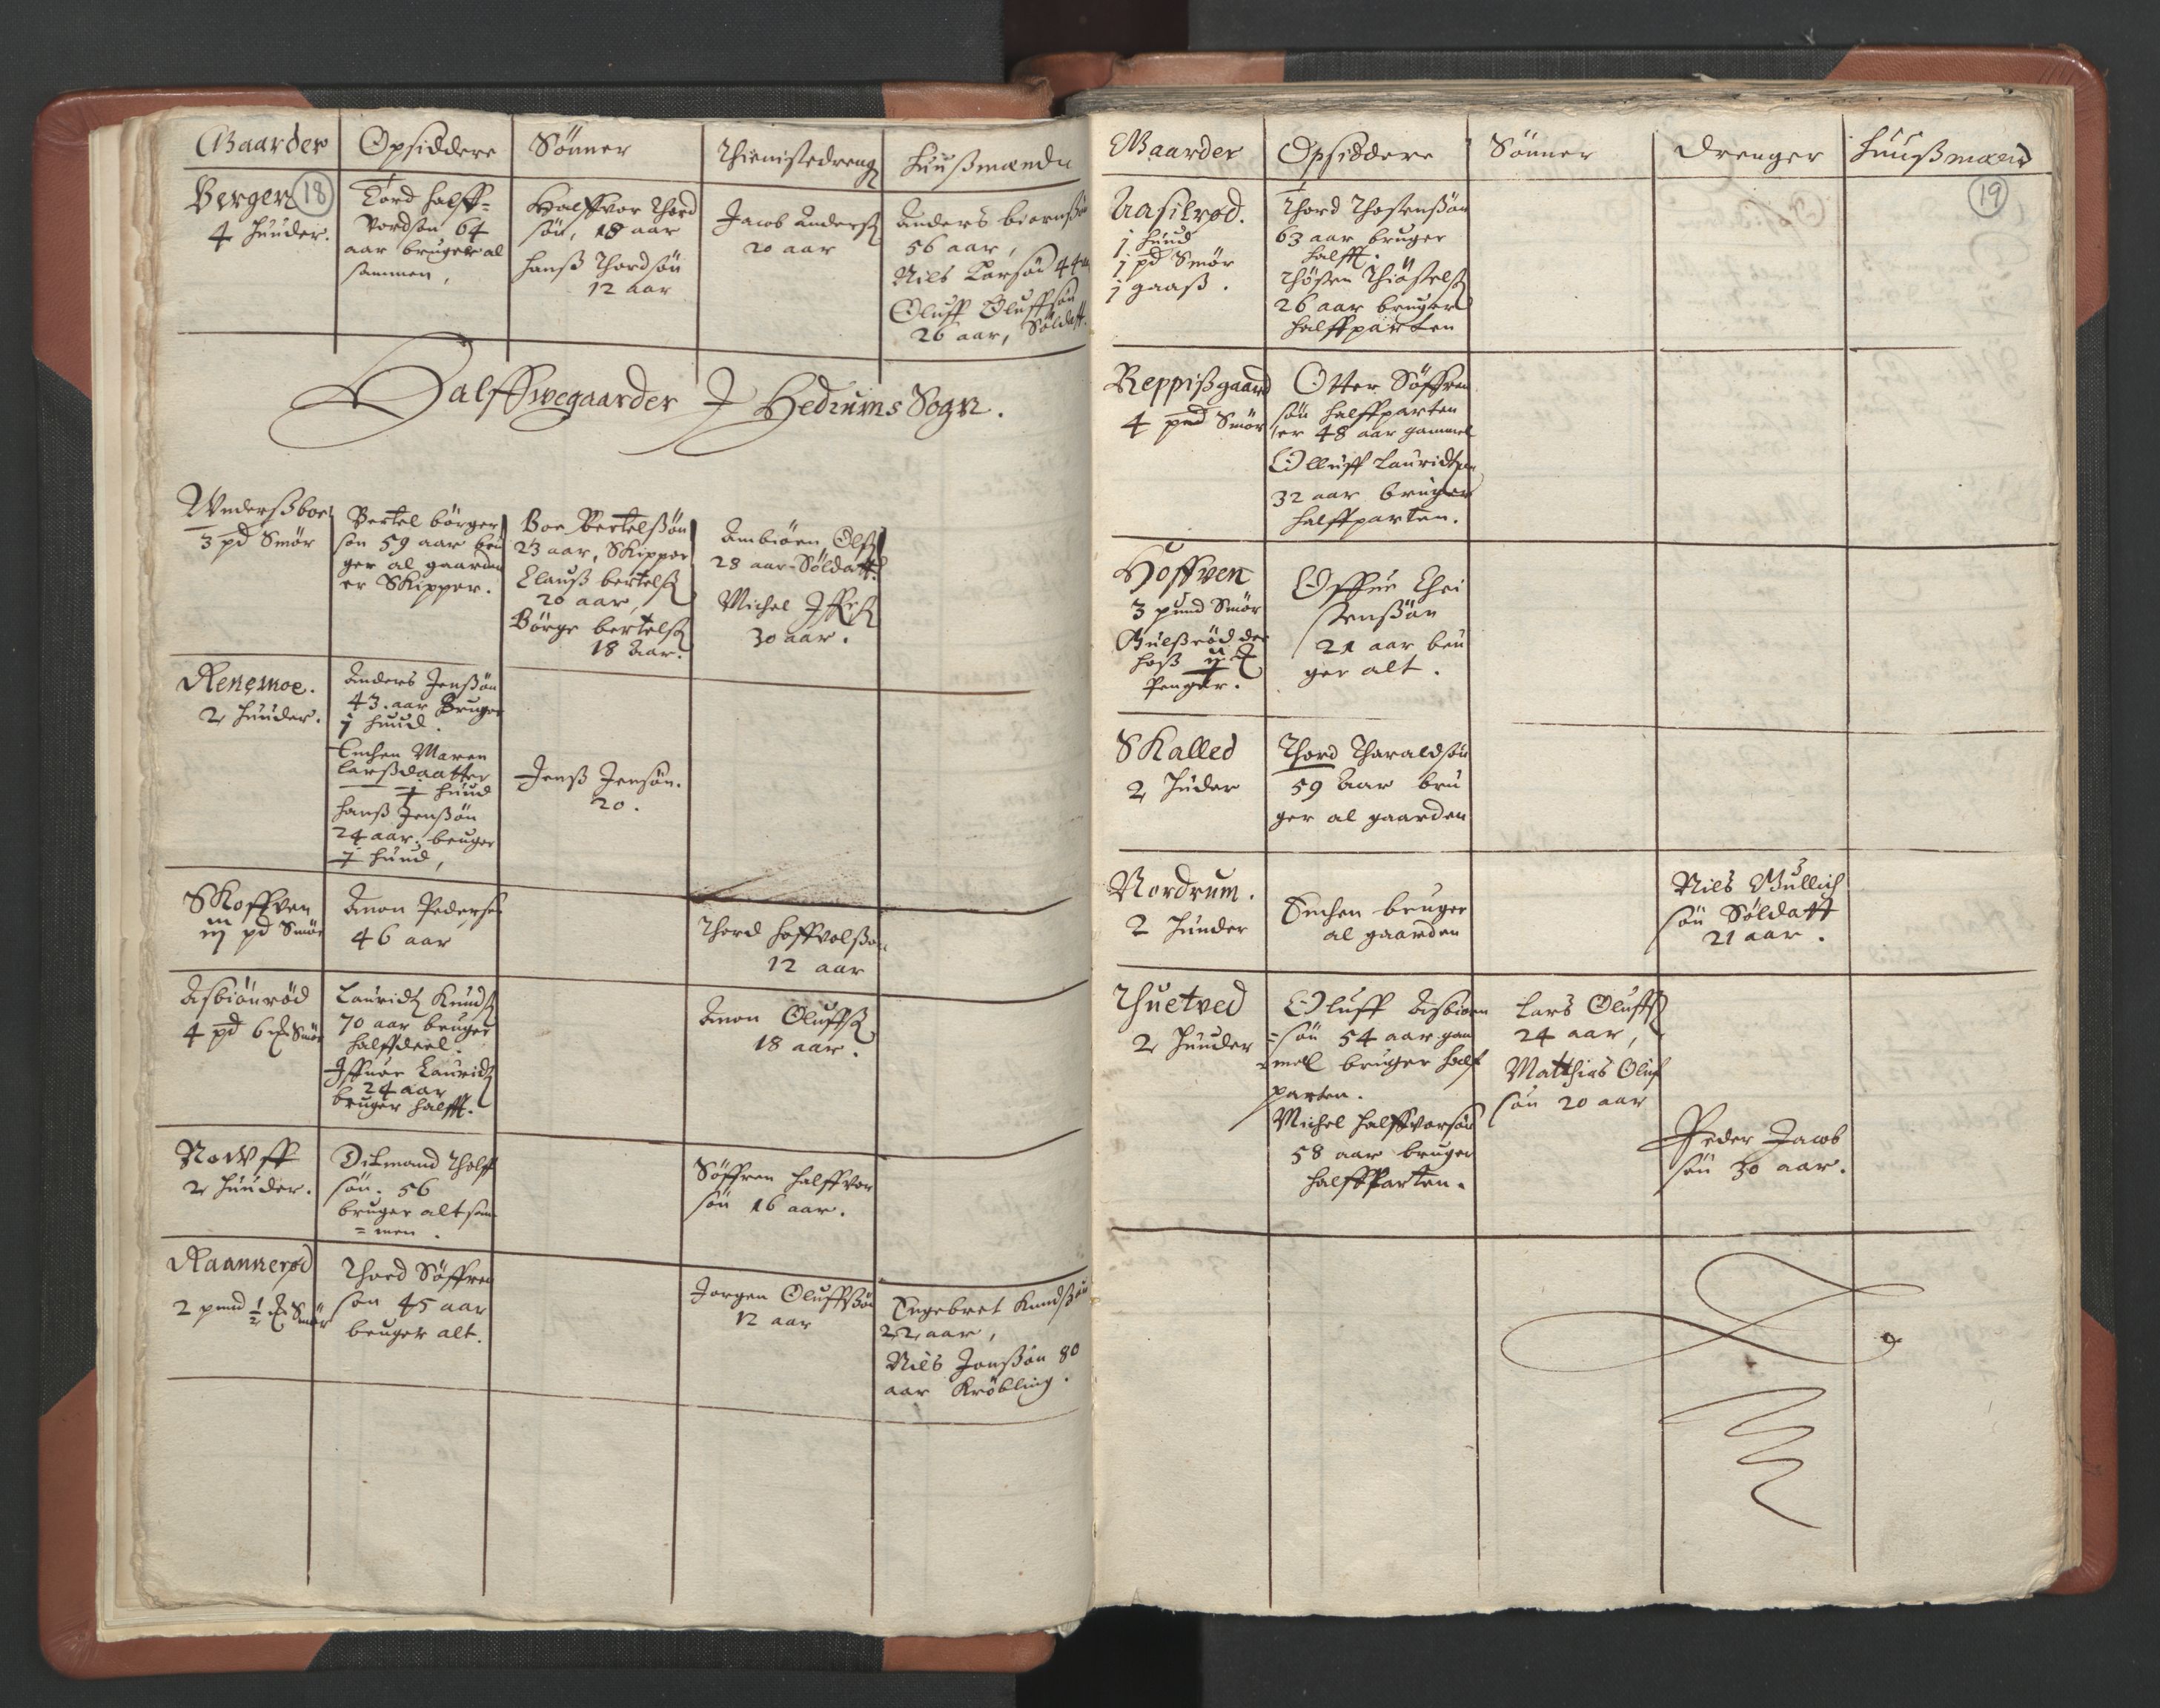 Gaarder
Opsiddere
Sönner
Thienistedreng
Huußmænd
Berger 18
4 Huuder.
Tord Halff=
vordsøn 64
aar bruger al
sammen,
Halffvor Thord
søn, 18 aar
Hanß Thordsøn
12 aar
Jacob Anderß
20 aar
Anders biørnßøn
56 aar,
Niels Larsøn 44
Oluff Oluffsøn
26 aar, Söldatt.
Halffwegaarder J Hedrums Sogn.
Anderßboe
3 pd Smör
Bertel börger
søn 59 aar bru
ger al gaarden
er Skipper.
Boe Bertelßøn
23 aar, Skipper
Clauß bertelß
20 aar,
Börge bertelß
18 aar.
Ambiörn Olß
28 aar Söldatt.
Michel Jffß
30 aar.
Renemoe.
2 Huuder.
Anders Jenßøn
43. aar Bruger
j huud.
Enchen Maren
Larßdaatter
huud
Hanß Jenßøn
24 aar, bruger
huud,
Jenß Jensøn.
20.
Skoffven
iij pd Smör
Amon Pederß
46 aar
Thord Hoffvolßøn
12 aar
Asbiönröd
4 pd 6 Smör
Lauridß Knudß
70 aar bruger
halffdeel.
Jffuer Lauridß
24 aar
bruger halfft.
Amon Oluffß
18 aar.
2 Huuder.
Odmand Tholff
søn. 56
bruger alt sam
=men.
Söffren Halffvor
søn 16 aar.
Raannerød
2 pund ½ Smör
Thord Söffren
søn 45 aar
bruger alt.
Jorgen Oluffßøn
12 aar
Engebret Knudßøn
22 aar,
Niels Jonßøn 80
aar Kröbling.
Gaarder
Opsiddere
Sönner
Drenger
Huußmænd
19
Aasilrød.
j huud
j pd Smör
j gaaß.
Thord Thostenßøn
63 aar bruger
halfft.
Thösten Thiöstelß
26 aar bruger
halffparten
Reppißgaard
4 pnd Smör
Otter Söffren
søn halffparten
er 48 aar gammel
Olluff Lauridtzen
32 aar bruger
halffparten.
Hoffven
3 pund Smör
Gulßröd der
hoß
Penger.
Offue Chri
stenßøn
21 aar bru
ger alt.
Skalled
2 Huder
Thord Tharaldsøn
59 aar bru
ger al gaarden
Nordrum.
2 Hunder
Enchen bruger
al gaarden
Niels Gullich
søn Söldatt
21 aar.
Thuetved
2 Huuder
Oluff Asbiørn
=søn 54 aar gam
mel bruger half
parten.
Michel Halffvorsøn
58 aar bruger
halffparten.
Lars Oluffß
24 aar,
Matthias Oluf
søn 20 aar
Peder Jacob
søn 30 aar.